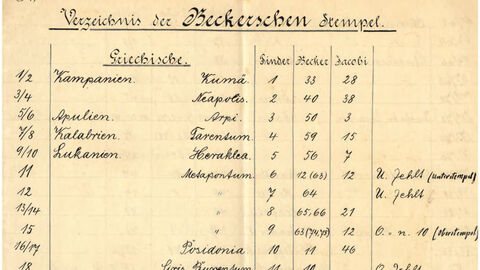 Verzeichnis der Beckerschen Stempel.
Griechische. Pinder Becker Jacobi
1/2 Kampanien. Kumä 1 33 28
3/4 Neapolis. 2 40 38
5/6 Apulien. Arpi. 3 50 3
7/8 Kalabrien. Tarentum. 4 59 15
9/10 Lukanien. Heraklea. 5 56 7
11 Metapontum. 6 12(63) 12 U. fehlt (Unterstempel)
12 " 7 64 U. fehlt
13/14 " 8 65,66 21
15 " 9 63(74,75) 12 O. = n. 10 (Oberstempel)
16/17 Posidonia 10 11 46
18 11 10 O. fehlt